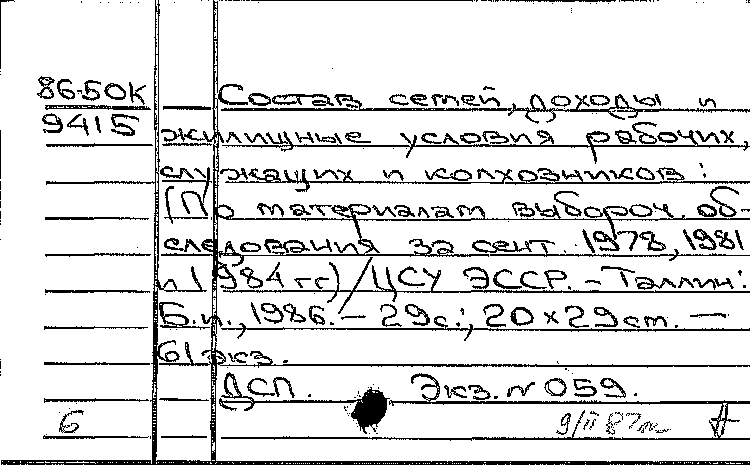 86-50К Состав семей, доходы и
9415 жилищные условия рабочих,
служащих и колхозников:
(По материалам выбороч. об-
следования за сент. 1978, 1981
и 1984 гг) / ЦСУ ЭССР. - Таллин:
Б.и., 1986. - 29с.; 20×29см. -
61 экз.
ДСП. Экз. N 059.
6 9/II 87